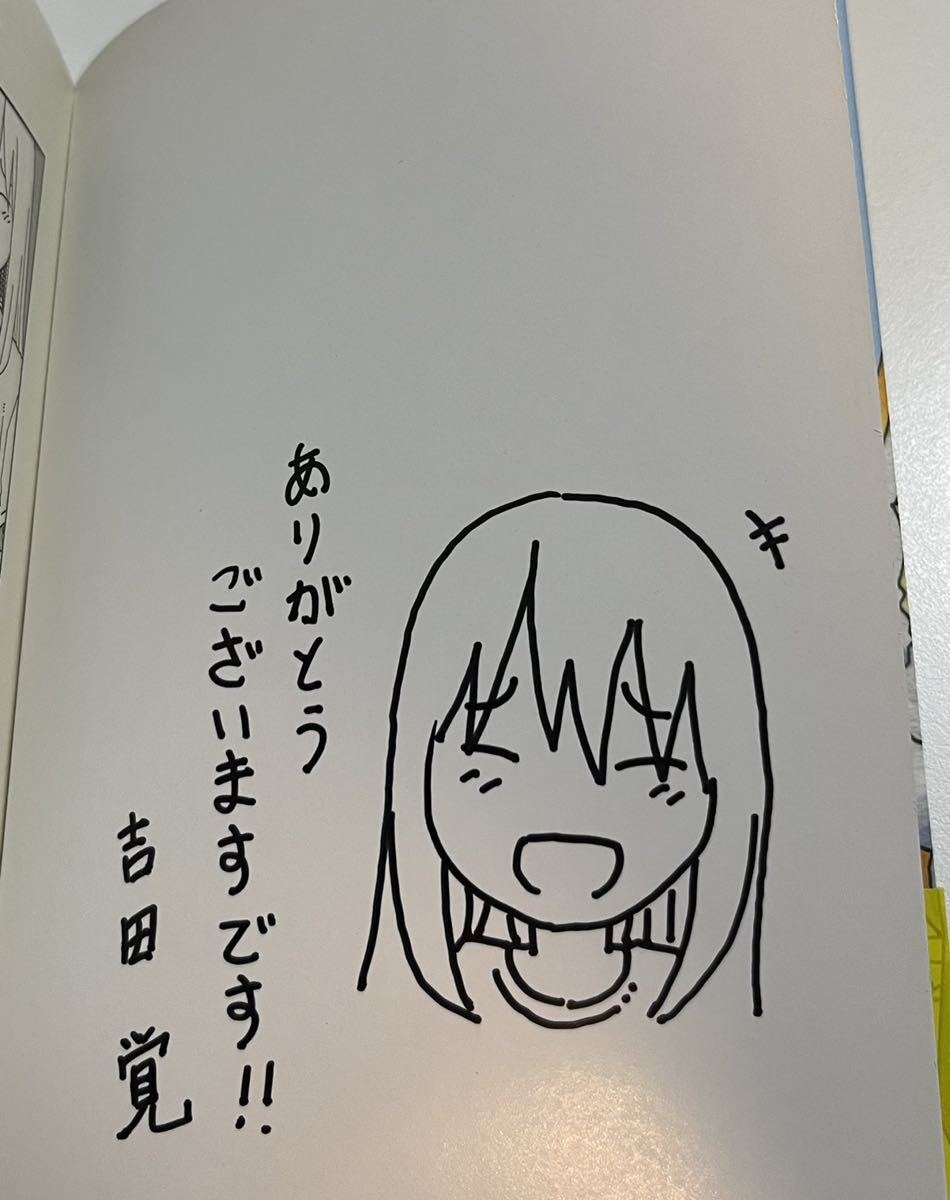 ありがとう
ございますです!!
吉田覚